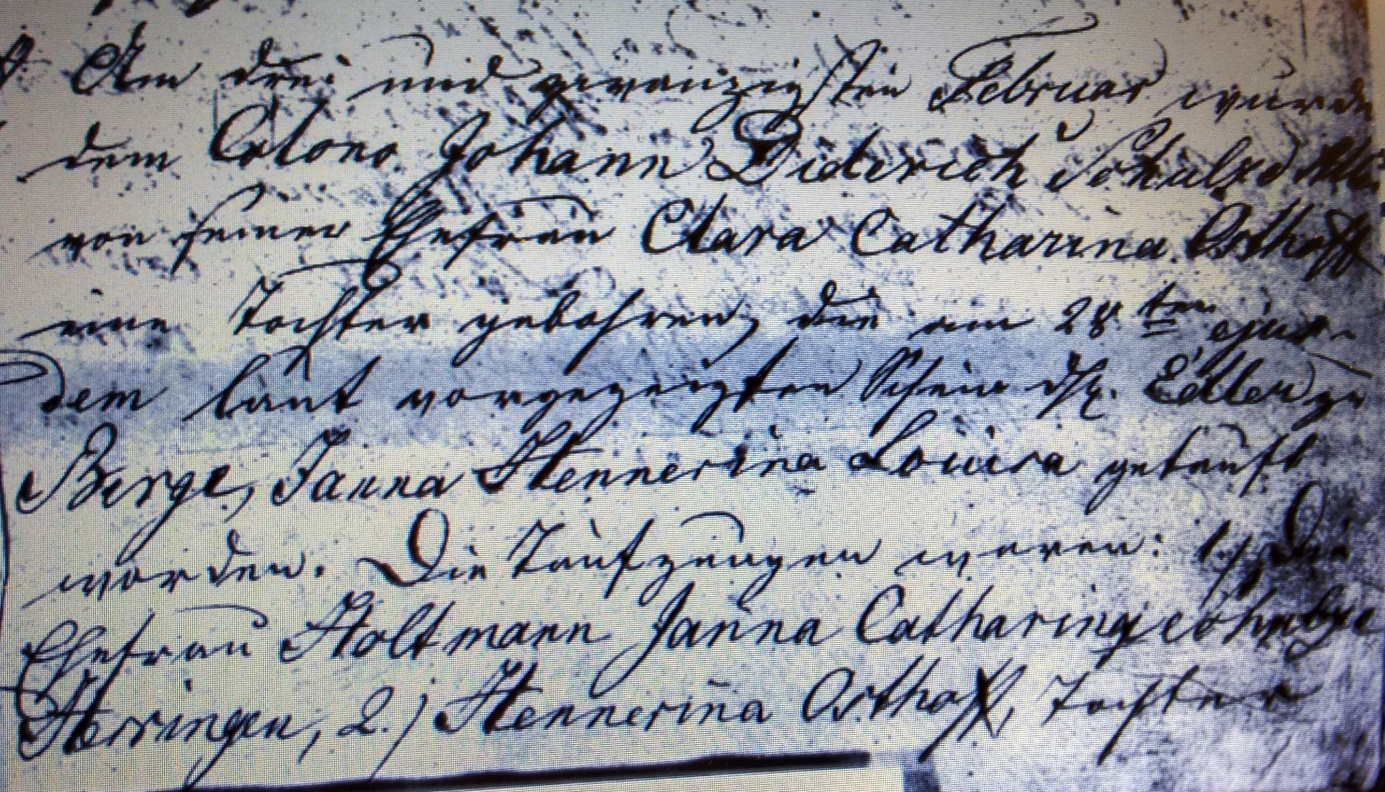 Am drei und zwanzigsten Februar wurde
dem Colono Johann Diderich Schulze
von seiner Ehefrau Clara Catharina Osthoff
eine Tochter gebohren, die am 28ten ejus-
dem laut vorgezeigten Schein dh. Edler zu
Berge, Janna Hennerina Louisa getauft
worden. Die Taufzeugen waren: 1.) die
Ehefrau Holtmann Janna Catharina
Herringen, 2.) Hennerina Osthoff, Tochter